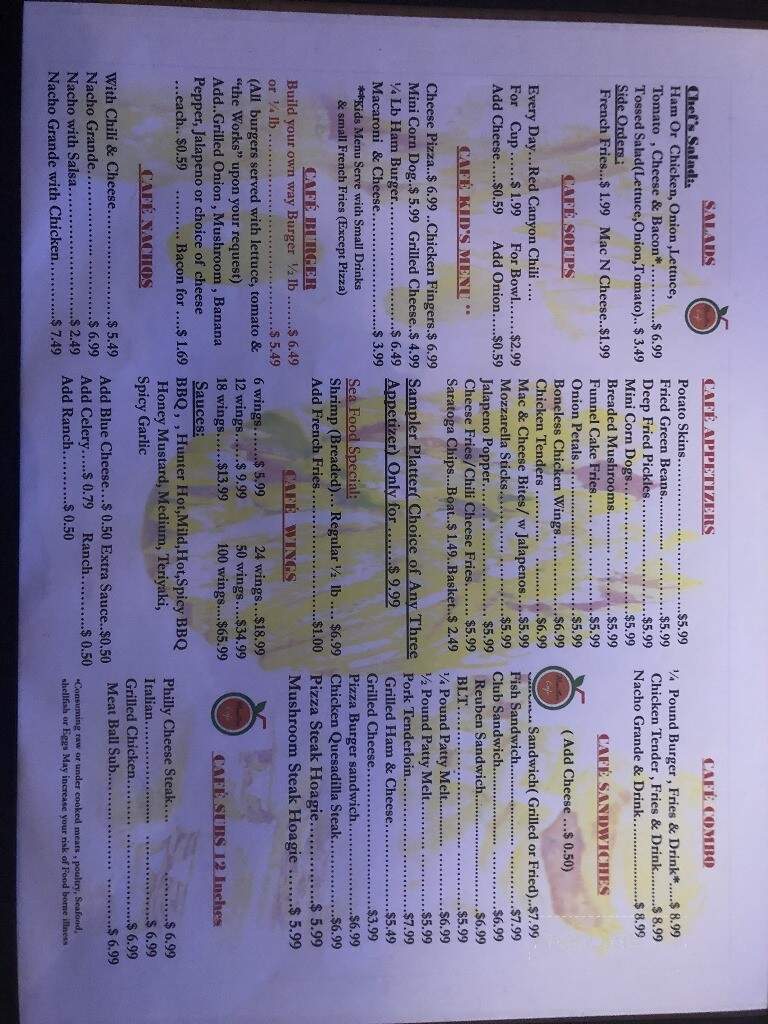 SALADS
Chef's Salad:
Ham Or Chicken, Onion,Lettuce,
Tomato , Cheese & Bacon*............$ 6.99
Tossed Salad(Lettuce,Onion,Tomato).. $ 3.49
Side Orders :
French Fries...$ 1.99 Mac N Cheese..$1.99
CAFÉ SOUPS
Every Day... Red Canyon Chili ....
For Cup ......$ 1.99 For Bowl.....$2.99
Add Cheese.....$0.59 Add Onion ....$0.59
CAFÉ KID'S MENU **
Cheese Pizza..$ 6.99 ..Chicken Fingers.$ 6.99
Mini Corn Dog..$ 5.99 Grilled Cheese..$ 4.99
¼ Lb Ham Burger........................$ 6.49
Macaroni & Cheese.......................$ 3.99
**Kids Menu Serve with Small Drinks
& small French Fries (Except Pizza)
CAFÉ BURGER
Build your own way Burger ½ lb .......$ 6.49
or ¼ lb ...................................$ 5.49
(All burgers served with lettuce, tomato &
"the Works" upon your request)
Add..Grilled Onion , Mushroom , Banana
Pepper, Jalapeno or choice of cheese
....each.. $0.59 .......... Bacon for ....$ 1.69
CAFÉ NACHOS
With Chili & Cheese......................$ 5.49
Nacho Grande.............................$ 6.99
Nacho with Salsa.........................$ 2.49
Nacho Grande with Chicken............$ 7.49
CAFÉ APPETIZERS
Potato Skins.............................$5.99
Fried Green Beans........................$5.99
Deep Fried Pickles.......................$5.99
Mini Corn Dogs...........................$5.99
Breaded Mushrooms........................$5.99
Funnel Cake Fries........................$5.99
Onion Petals.............................$5.99
Boneless Chicken Wings...................$6.99
Chicken Tenders .........................$6.99
Mac & Cheese Bites/ w Jalapenos...$5.99
Mozzarella Sticks........................$5.99
Jalapeno Popper..........................$5.99
Cheese Fries/Chili Cheese Fries.......$5.99
Saratoga Chips...Boat..$ 1.49..Basket..$ 2.49
Sampler Platter( Choice of Any Three
Appetizer) Only for ........$ 9.99
Sea Food Special:
Shrimp (Breaded)... Regular ½ lb .... $6.99
Add French Fries.........................$1.00
CAFÉ WINGS
6 wings .......$ 5.99 24 wings...$18.99
12 wings......$ 9.99 50 wings....$34.99
18 wings......$13.99 100 wings....$65.99
Sauces:
BBQ , , Hunter Hot,Mild,Hot,Spicy BBQ
Honey Mustard, Medium, Teriyaki,
Spicy Garlic
Add Blue Cheese...$ 0.50 Extra Sauce..$0.50
Add Celery.....$ 0.79 Ranch...........$ 0.50
Add Ranch...........$ 0.50
CAFÉ COMBO
¼ Pound Burger , Fries & Drink*.....$ 8.99
Chicken Tender , Fries & Drink.......$ 8.99
Nacho Grande & Drink.....................$ 8.99
CAFÉ SANDWICHES
( Add Cheese ...$ 0.50)
Sandwich( Grilled or Fried)..$7.99
Fish Sandwich............................$7.99
Club Sandwich............................$6.99
Reuben Sandwich..........................$6.99
BLT .....................................$5.99
¼ Pound Patty Melt.......................$6.99
½ Pound Patty Melt.......................$5.99
Pork Tenderloin..........................$7.99
Grilled Ham & Cheese.....................$5.49
Grilled Cheese...........................$3.99
Pizza Burger sandwich....................$6.99
Chicken Quesadilla Steak.................$6.99
Pizza Steak Hoagie.................$ 5.99
Mushroom Steak Hoagie .......$ 5.99
CAFÉ SUBS 12 Inches
Philly Cheese Steak......................$ 6.99
Italian..................................$ 6.99
Grilled Chicken..........................$ 6.99
Meat Ball Sub............................$ 6.99
*Consuming raw or under cooked meats , poultry, Seafood,
shellfish or Eggs May increase your risk of Food borne illness